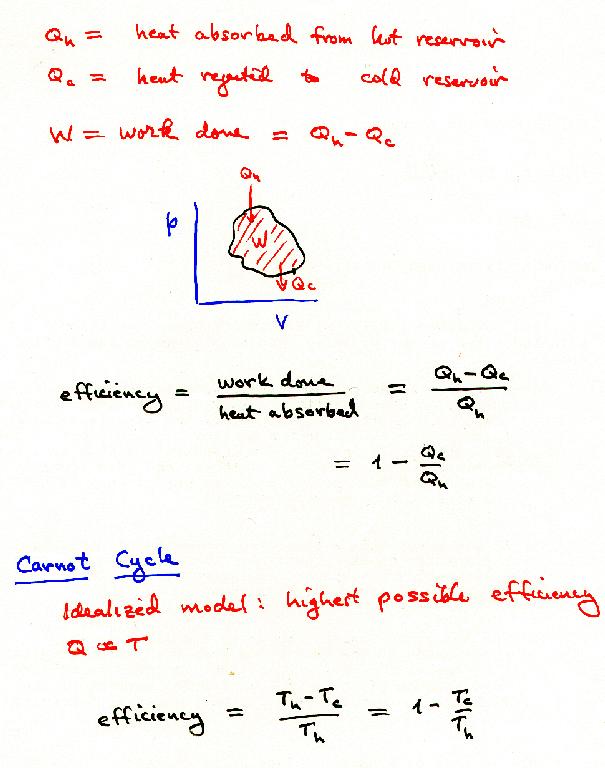 Qh = heat absorbed from hot reservoir
Qc = heat rejected to cold reservoir
W = work done = Qh - Qc
Qh
p
W
Qc
V
efficiency = work done / heat absorbed = Qh - Qc / Qh
= 1 - Qc / Qh
Carnot Cycle
Idealized model: highest possible efficiency
Q ∝ T
efficiency = Th - Tc / Th = 1 - Tc / Th